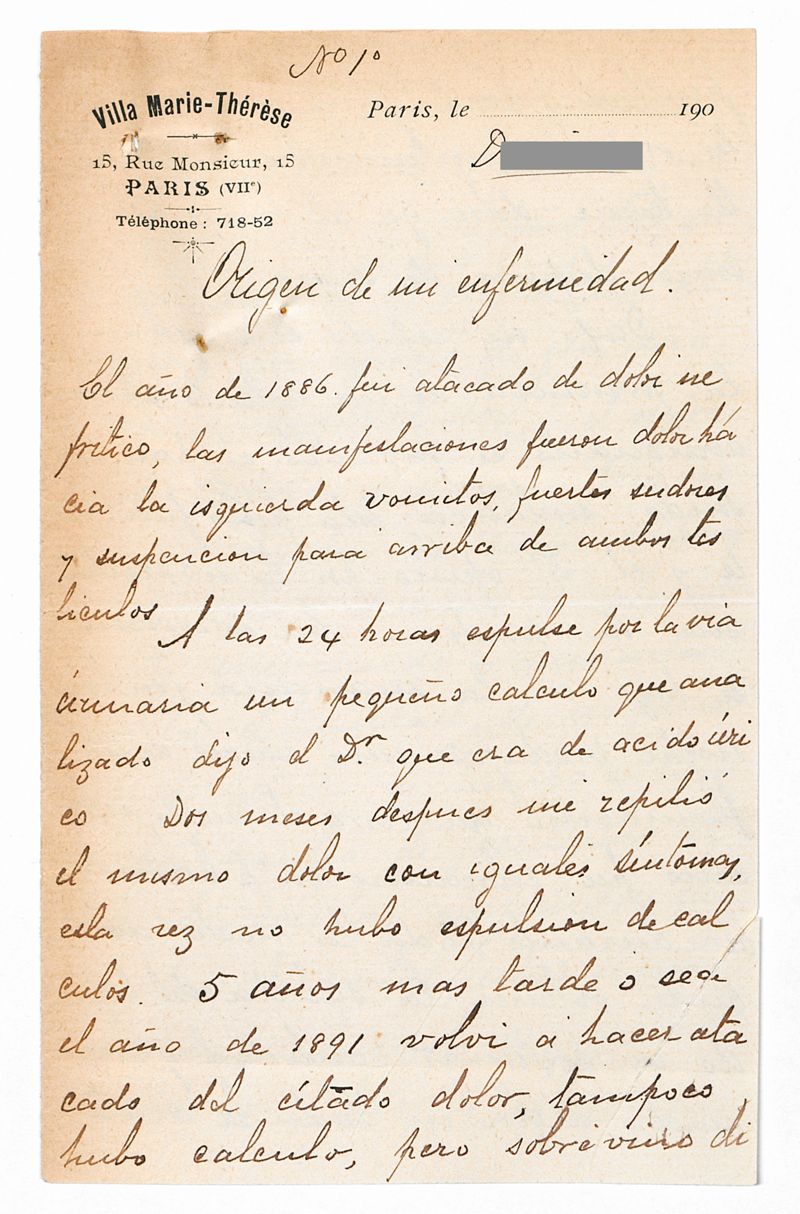 Nº 1º
Villa Marie-Thérèse
15, Rue Monsieur, 15
PARIS (VIIᵉ)
Téléphone : 718-52
Paris, le 190
D
Origen de mi enfermedad.
El año de 1886. fui atacado de dolor ne
fritico, las manifestaciones fueron dolor há
cia la isquierda vomitos, fuertes sudores
y suspencion para arriba de ambos tes
ticulos A las 24 horas espulse por la via
úrinaria un pequeño calculo que ana
lizado dijo el Dr. que era de acido úri
co Dos meses despues me repitió
el mismo dolor con iguales síntomas,
esta vez no hubo espulsion de cal
culos. 5 años mas tarde o sea
el año de 1891 volvi a hacer ata
cado del citado dolor, tampoco
hubo calculo, pero sobrevino di